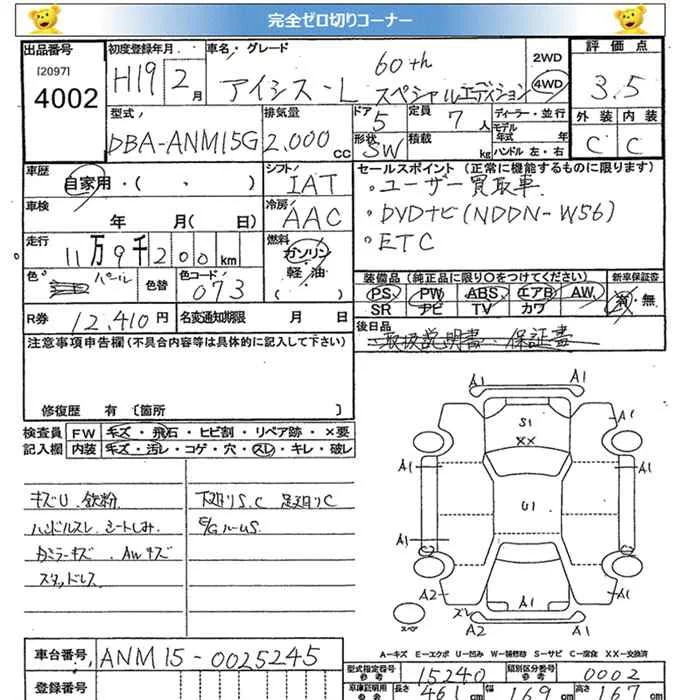 完全ゼロ切りコーナー
出品番号 初度登録年月 車名・グレード 2WD 評価点
[2097] 4002 H19 2月 アイシス-L 60th スペシャルエディション 4WD 3.5
型式 排気量 ドア 定員 ディーラー・並行 外装 内装
DBA-ANM15G 2,000cc 5 7人 モデル年式 年 C C
形状 SW 積載 kg ハンドル 左・右
車歴 シフト セールスポイント (正常に機能するものに限ります)
自家用・( ・ ) IAT ・ユーザー買取車
車検 年 月( 日) 冷房 AAC ・DVDナビ(NDDN-W56)
走行 11万9千200km 燃料 ガソリン 軽油 ( ) ・ETC
色 パール 色替 色コード 073 装備品(純正品に限り○をつけてください) 新車保証書
PS PW ABS エアB AW 有・無
SR ナビ TV カワ
R券 12,410円 名変通知期限 月 日 後日品
取扱説明書・保証書
注意事項申告欄(不具合内容等は具体的に記入して下さい)
修復歴 有 〔箇所 〕
検査員 FW キズ・飛石・ヒビ割・リペア跡・×要
記入欄 内装 キズ・汚レ・コゲ・穴・スレ・キレ・破レ
キズU 鉄粉 下廻りS.C 足廻りC
ハンドルスレ シートしみ E/GルームS
カミラーキズ AWキズ
スタッドレス
A1 A1
S1 A1
XX
A1 A1
U1
A1
A2 ズレ A1
スペア A2 A1
A-キズ E-エクボ U-凹み W-補修跡 S-サビ C-腐食 XX-交換済
車台番号 ANM15-0025245 型式指定番号 15240 類別区分番号 0002
登録番号 車庫証明用 長さ 461cm 幅 169cm 高さ 167cm